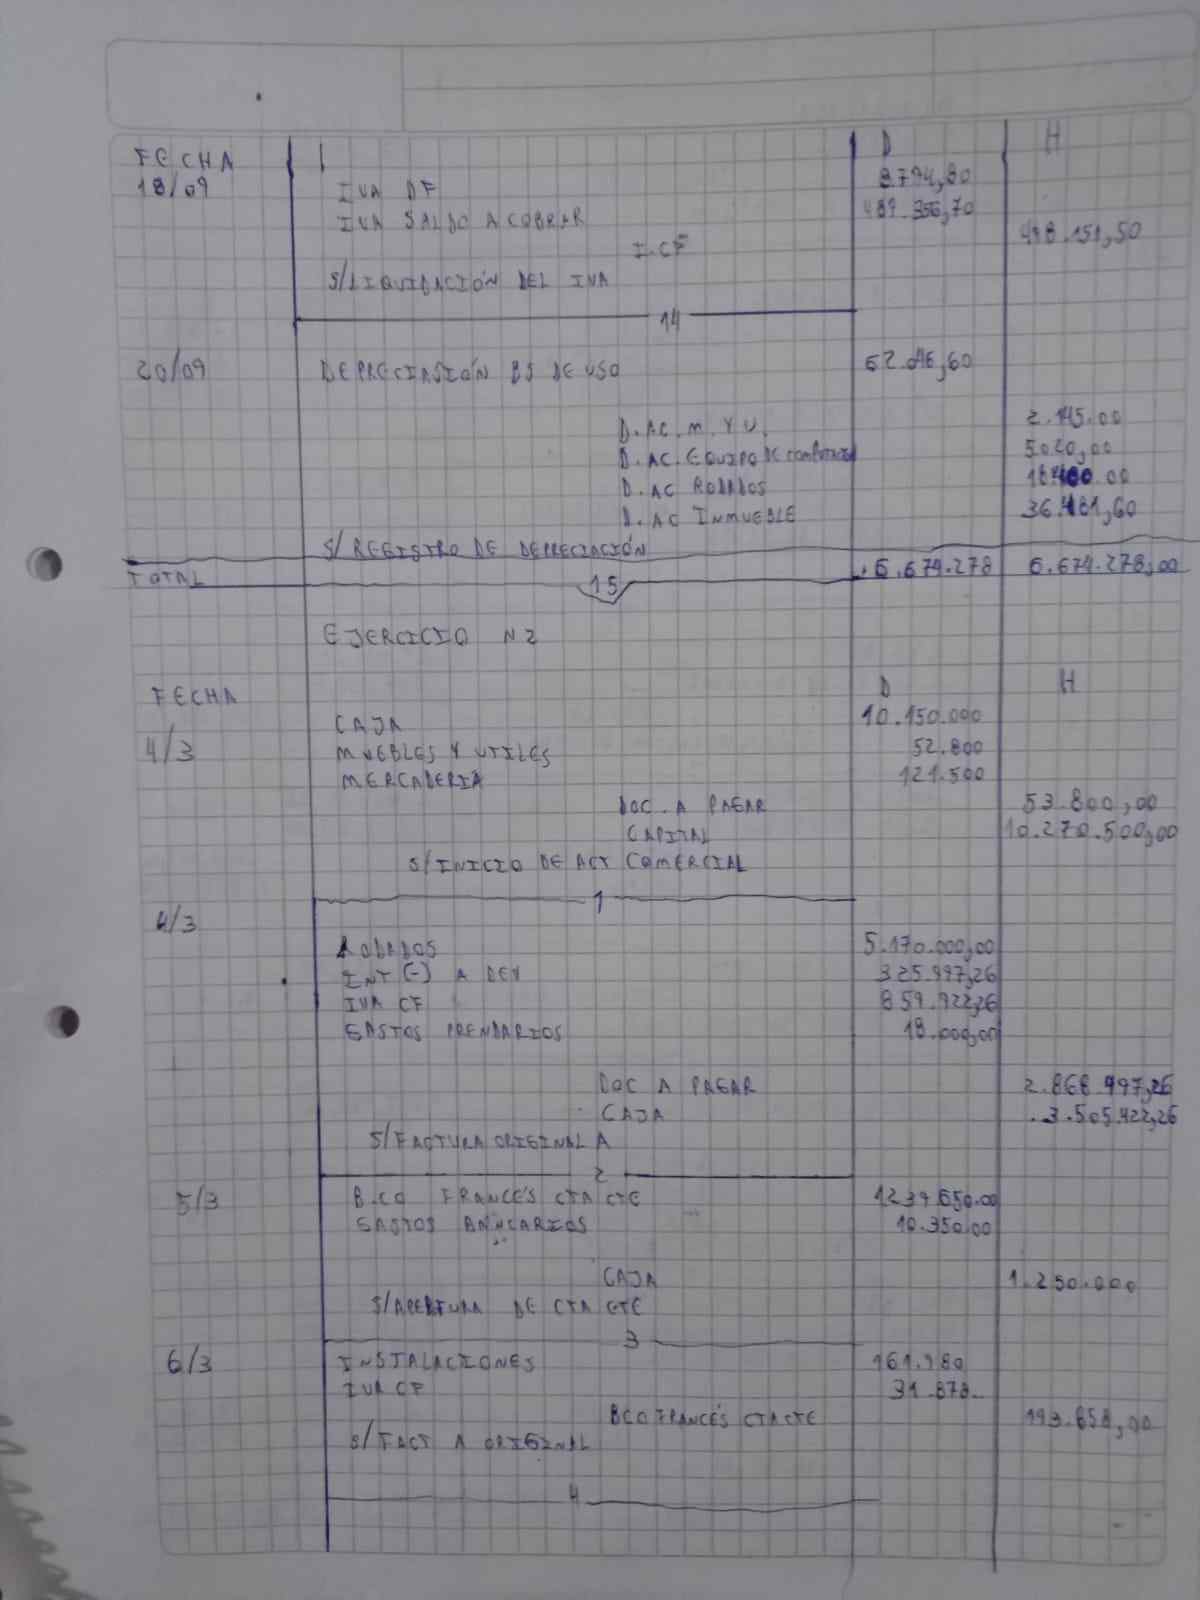 FECHA D H
18/09 IVA DF 8.794,80
IVA SALDO A COBRAR 489.356,70
I.CF 498.151,50
S/LIQUIDACIÓN DEL IVA
14
20/09 DEPRECIASIÓN BS DE USO
D. AC. M. Y U. 2.145.00
D. AC. EQUIPO DE 5020,00
D. AC RODADOS
D. AC INMUEBLE 36.481,60
S/ REGISTRO DE DEPRECIACIÓN
TOTAL 6.674.278 6.674.278,00
15
EJERCICIO N2
FECHA D H
CAJA 10.150.000
4/3 MUEBLES Y UTILES 52.800
MERCADERIA 121.500
DOC. A PAGAR 53.800,00
CAPITAL 10.270.500,00
S/INICIO DE ACT COMERCIAL
1
4/3
RODADOS 5.170.000,00
INT (-) A DEV 325.997,26
IVA CF 859.922,26
GASTOS PRENDARIOS 18.000,00
DOC A PAGAR 2.868.997,26
CAJA 3.505.422,26
S/FACTURA ORIGINAL A
2
5/3 BCO FRANCÉS CTA CTE 1239.650.00
GASTOS BANCARIOS 10.350.00
CAJA 1.250.000
S/APERTURA DE CTA CTE
3
6/3 INSTALACIONES 161.980
IVA CF 31.878
BCO FRANCÉS CTA CTE 193.858,00
S/ FACT A ORIGINAL
4